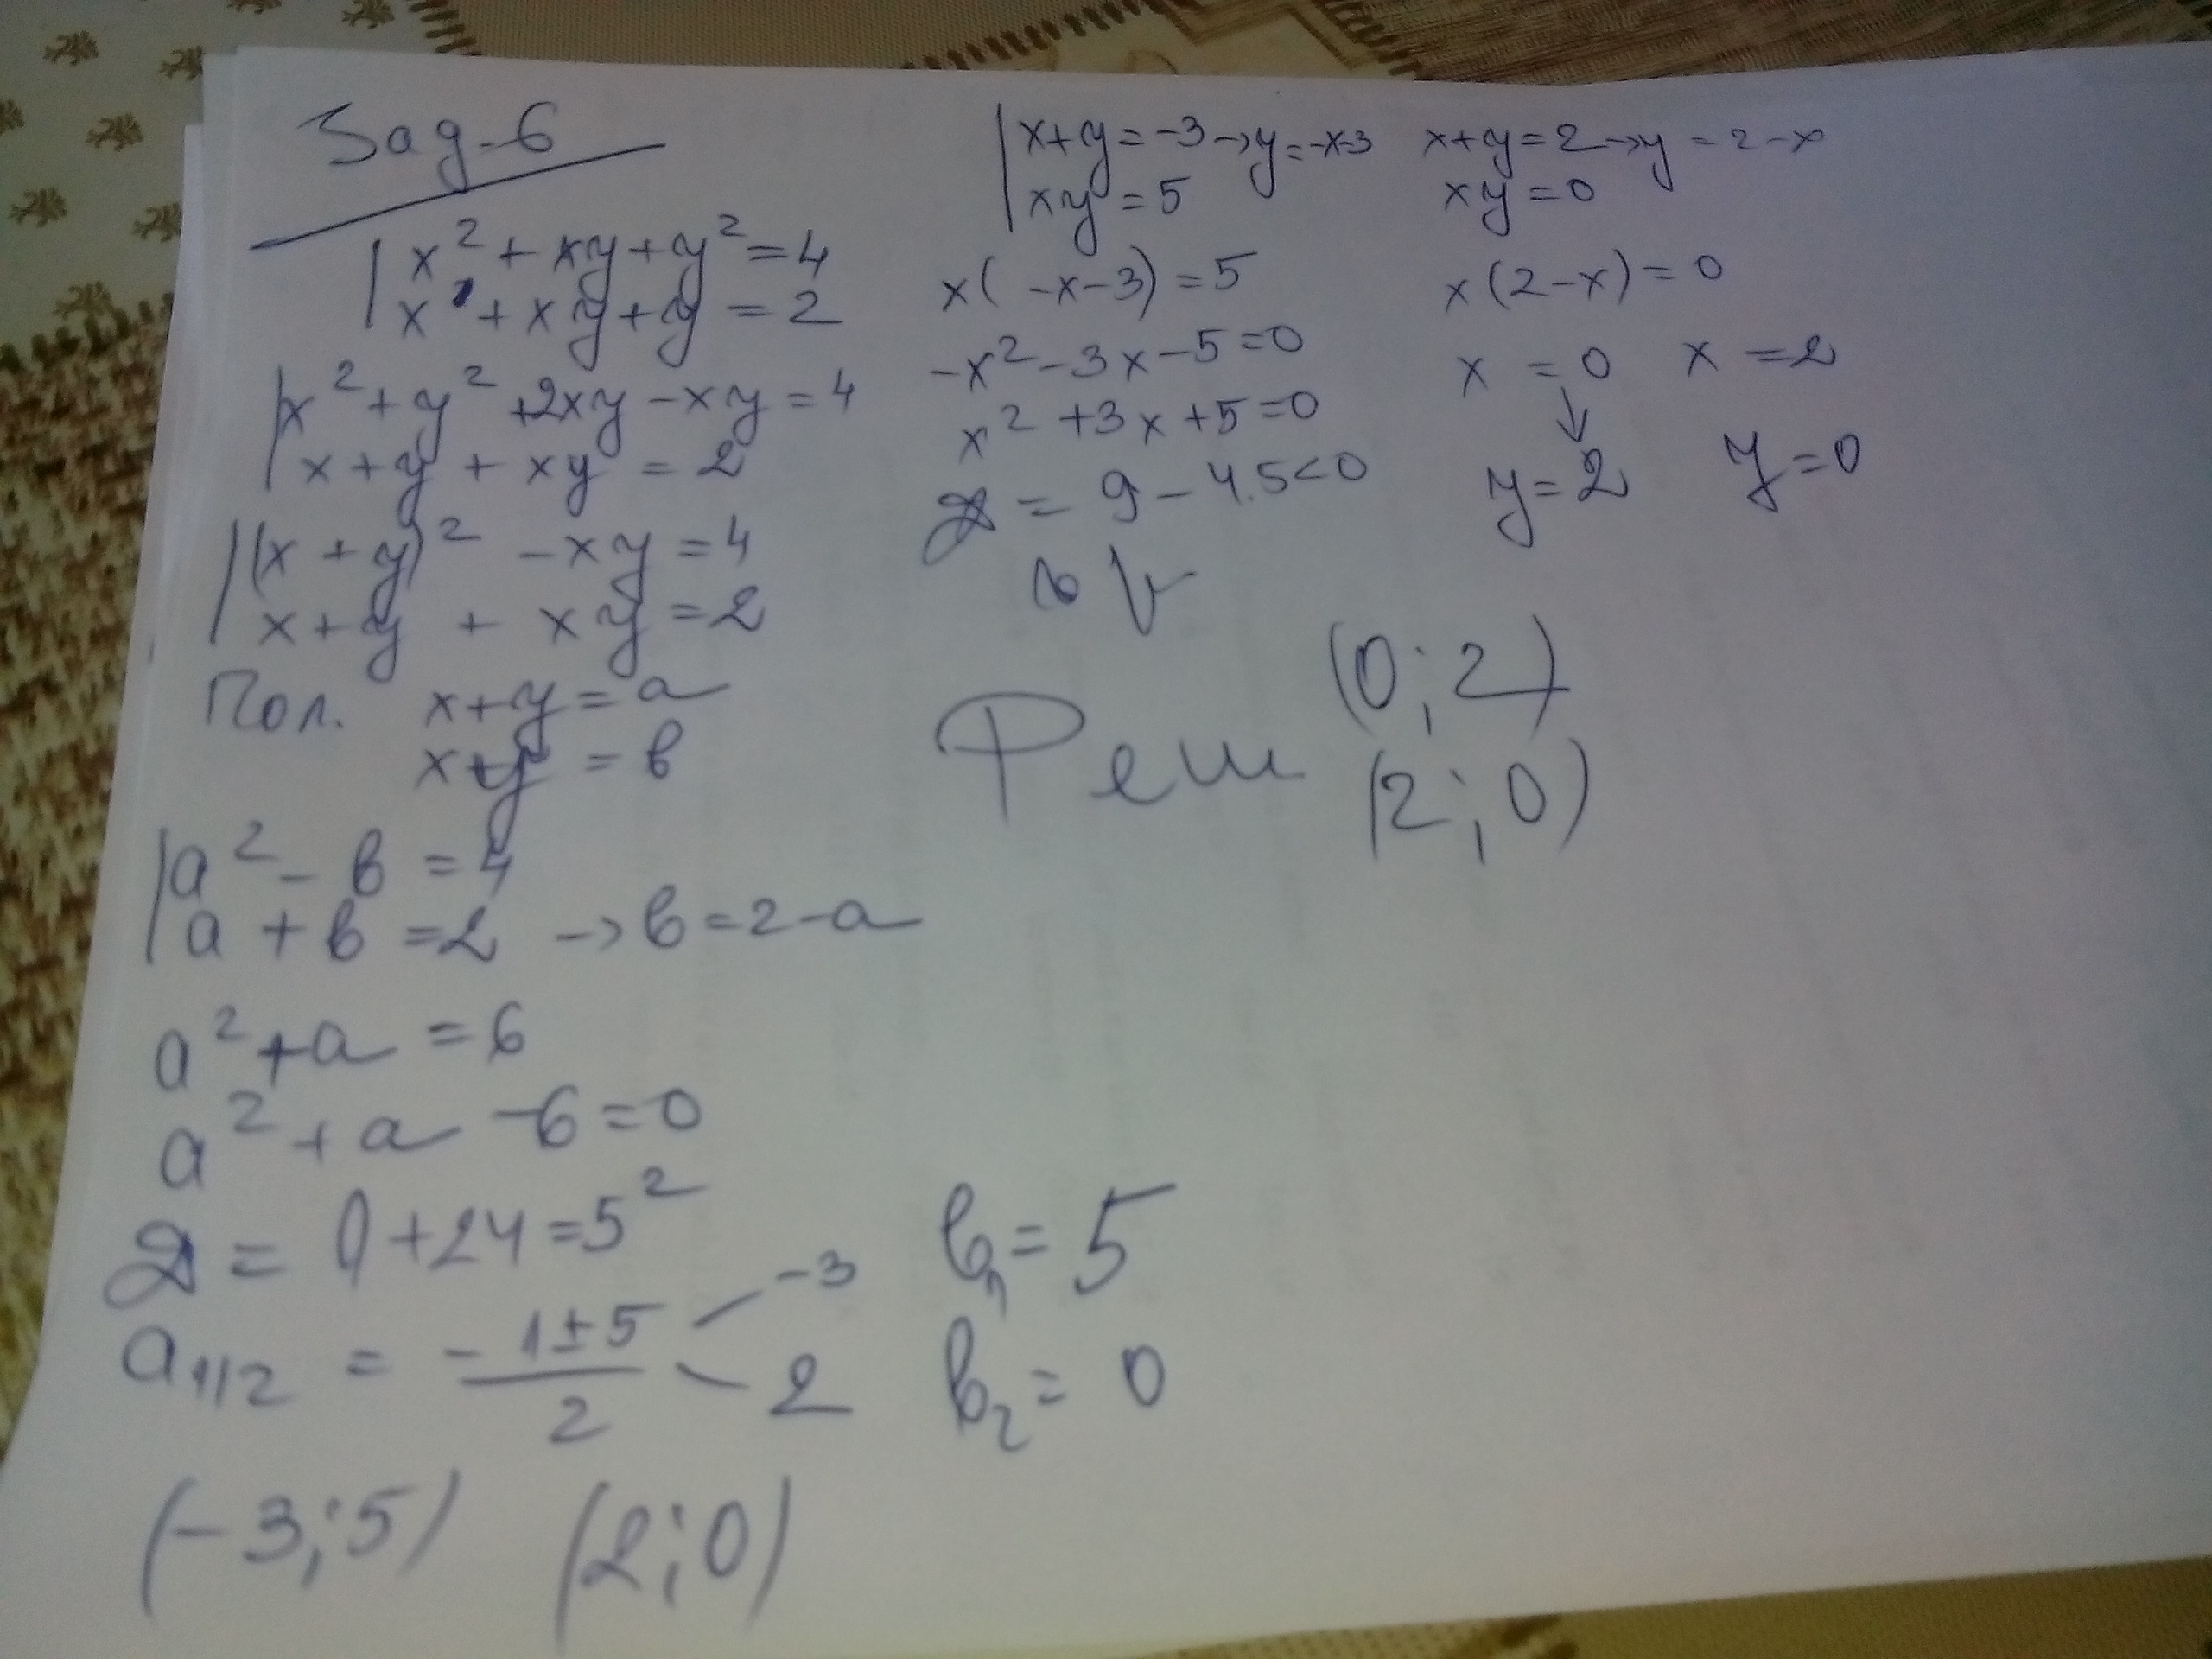 Зад-6
x² + xy + y² = 4
x + xy + y = 2
x² + y² + 2xy - xy = 4
x + y + xy = 2
(x + y)² - xy = 4
x + y + xy = 2
Пол. x + y = a
xy = b
a² - b = 4
a + b = 2 → b = 2 - a
a² + a = 6
a² + a - 6 = 0
D = 1 + 24 = 5²
a1/2 = (-1 ± 5)/2 -3 2
b₁ = 5
b₂ = 0
(-3; 5) (2; 0)
x + y = -3 → y = -x-3
xy = 5
x(-x-3) = 5
-x² - 3x - 5 = 0
x² + 3x + 5 = 0
D = 9 - 4.5 < 0
x + y = 2 → y = 2 - x
xy = 0
x(2-x) = 0
x = 0 x = 2
↓
y = 2 y = 0
Реш (0; 2)
(2; 0)